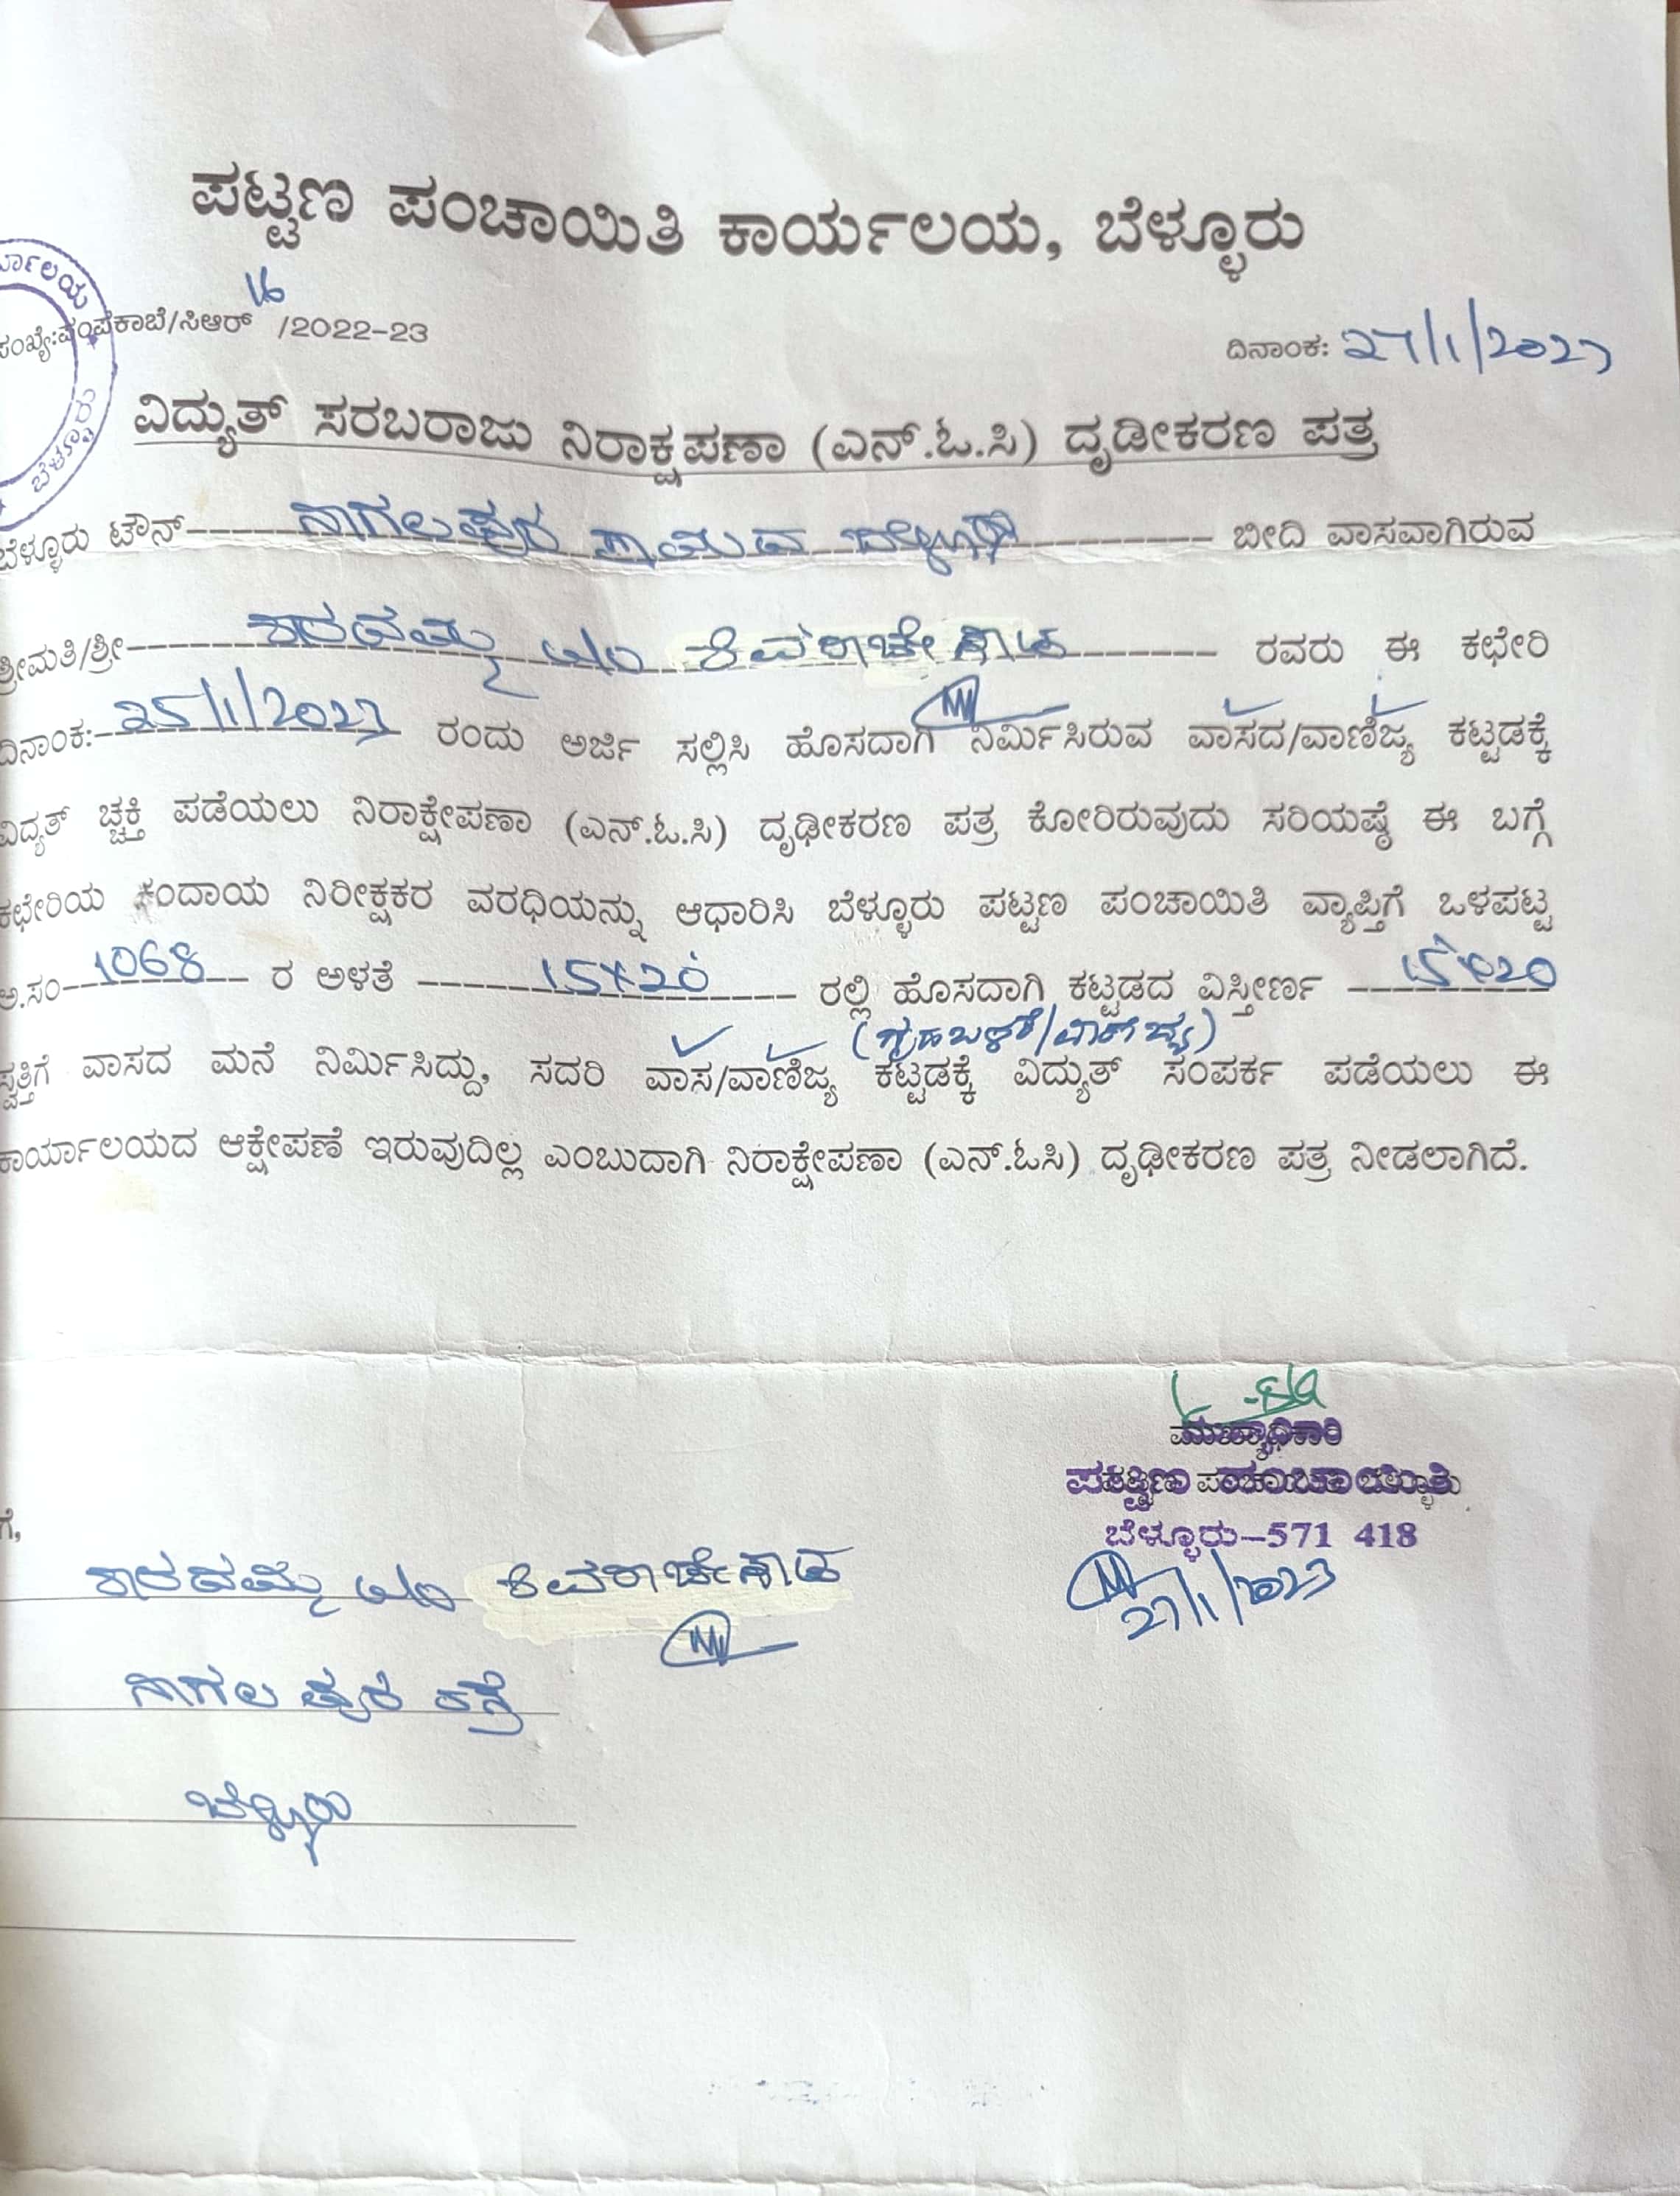 ಪಟ್ಟಣ ಪಂಚಾಯಿತಿ ಕಾರ್ಯಲಯ, ಬೆಳ್ಳೂರು
ರ್ಯಾಲಯ
ಬೆಳ್ಳೂರು
16
ಸಂಖ್ಯೆ:ಪಂಪಕಾಬೆ/ಸಿಆರ್ /2022-23
ದಿನಾಂಕ: 27/1/2023
ವಿದ್ಯುತ್ ಸರಬರಾಜು ನಿರಾಕ್ಷಪಣಾ (ಎನ್.ಓ.ಸಿ) ದೃಡೀಕರಣ ಪತ್ರ
ಬೆಳ್ಳೂರು ಟೌನ್ ನಾಗಲಪುರ ಬೀದಿ ವಾಸವಾಗಿರುವ
ಶ್ರೀಮತಿ/ಶ್ರೀ ಶಾರದಮ್ಮ ರವರು ಈ ಕಛೇರಿ
ದಿನಾಂಕ: 25/1/2023 ರಂದು ಅರ್ಜಿ ಸಲ್ಲಿಸಿ ಹೊಸದಾಗಿ ನಿರ್ಮಿಸಿರುವ ವಾಸದ/ವಾಣಿಜ್ಯ ಕಟ್ಟಡಕ್ಕೆ
ವಿದ್ಯತ್ ಚ್ಚಕ್ತಿ ಪಡೆಯಲು ನಿರಾಕ್ಷೇಪಣಾ (ಎನ್.ಓ.ಸಿ) ದೃಢೀಕರಣ ಪತ್ರ ಕೋರಿರುವುದು ಸರಿಯಷ್ಠೆ ಈ ಬಗ್ಗೆ
ಕಛೇರಿಯ ಕಂದಾಯ ನಿರೀಕ್ಷಕರ ವರಧಿಯನ್ನು ಆಧಾರಿಸಿ ಬೆಳ್ಳೂರು ಪಟ್ಟಣ ಪಂಚಾಯಿತಿ ವ್ಯಾಪ್ತಿಗೆ ಒಳಪಟ್ಟ
ಅ.ಸಂ 1068 ರ ಅಳತೆ 15X20 ರಲ್ಲಿ ಹೊಸದಾಗಿ ಕಟ್ಟಡದ ವಿಸ್ತೀರ್ಣ 15X20
(ಗೃಹಬಳಕೆ/ವಾಣಿಜ್ಯ)
ಸ್ವತ್ತಿಗೆ ವಾಸದ ಮನೆ ನಿರ್ಮಿಸಿದ್ದು, ಸದರಿ ವಾಸ/ವಾಣಿಜ್ಯ ಕಟ್ಟಡಕ್ಕೆ ವಿದ್ಯುತ್ ಸಂಪರ್ಕ ಪಡೆಯಲು ಈ
ಕಾರ್ಯಾಲಯದ ಆಕ್ಷೇಪಣೆ ಇರುವುದಿಲ್ಲ ಎಂಬುದಾಗಿ ನಿರಾಕ್ಷೇಪಣಾ (ಎನ್.ಓಸಿ) ದೃಢೀಕರಣ ಪತ್ರ ನೀಡಲಾಗಿದೆ.
ಮುಖ್ಯಾಧಿಕಾರಿ
ಪಟ್ಟಣ ಪಂಚಾಯ್ತಿ
ಬೆಳ್ಳೂರು-571 418
27/1/2023
ಗೆ,
ಶಾರದಮ್ಮ
ನಾಗಲಪುರ ರಸ್ತೆ
ಬೆಳ್ಳೂರು